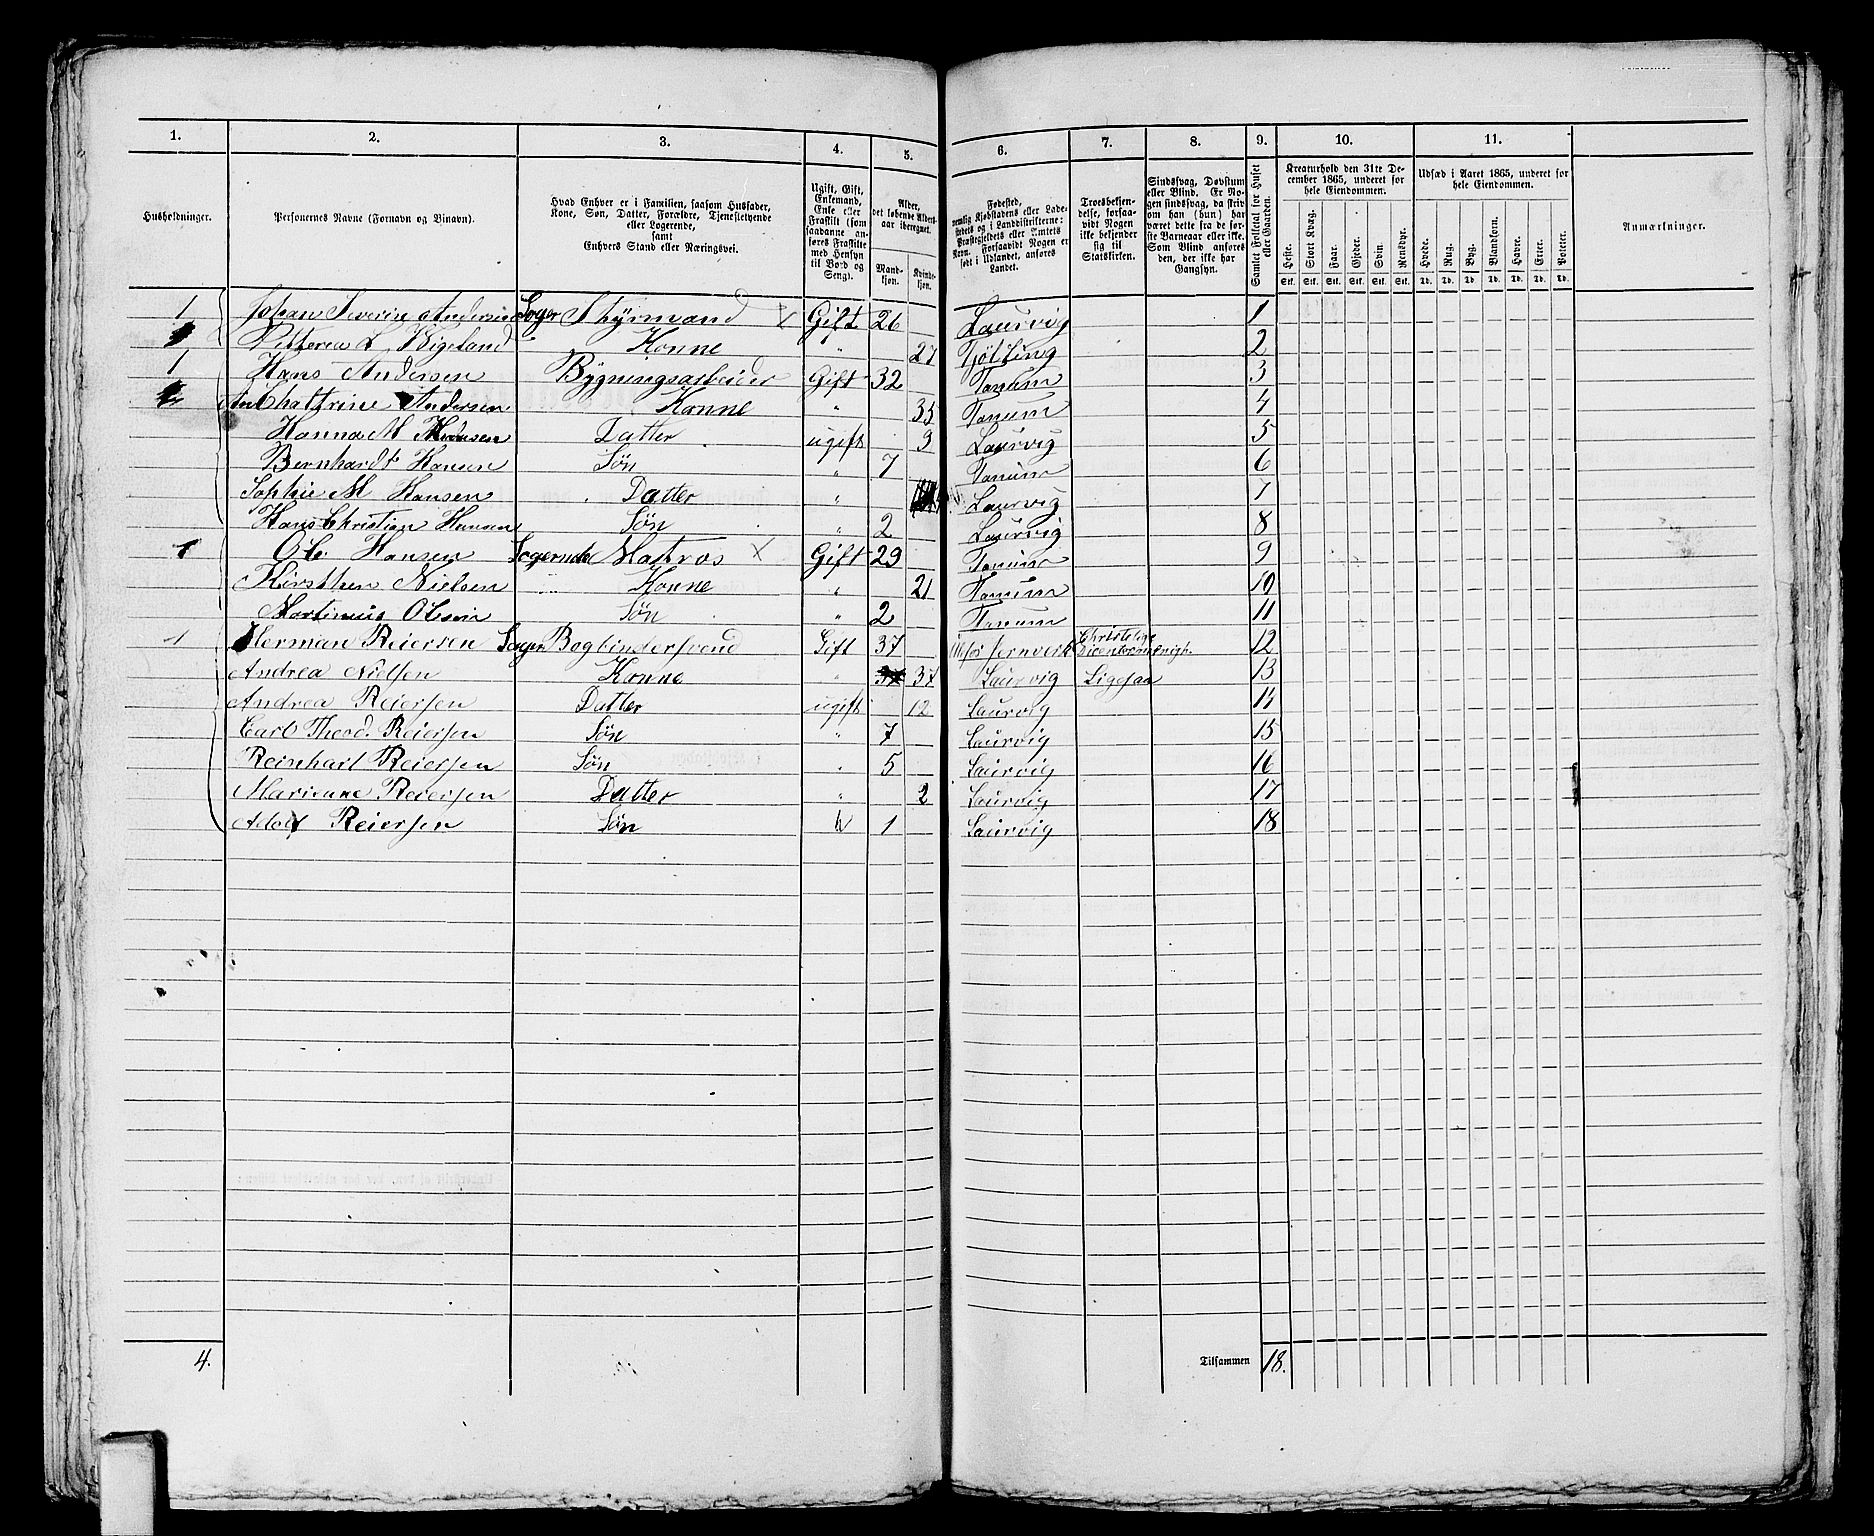 1. 2. 3. 4. 5. 6. 7. 8. 9. 10. 11.
Husholdninger.
Personernes Navne (Fornavn og Binavn).
Hvad Enhver er i Familien, saasom Husfader,
Kone, Søn, Datter, Forældre, Tjenestetyende
eller Logerende,
samt
Enhvers Stand eller Næringsvei.
Ugift, Gift,
Enkemand,
Enke eller
Fraskilt (som
saadanne an-
føres Fraskilte
med Hensyn
til Bord og
Seng).
Alder,
det løbende Alders-
aar iberegnet.
Mand-
kjøn.
Kvinde-
kjøn.
Fødested,
nemlig Kjøbstadens eller Lade-
stedets og i Landdistrikterne:
Præstegjeldets eller Amtets
Navn. Forsaavidt Nogen er
født i Udlandet, anføres
Landet.
Troesbekjen-
delse, forsaa-
vidt Nogen
ikke bekjender
sig til
Statskirken.
Sindssvag, Døvstum
eller Blind. Er No-
gen sindssvag, da skriv
om han (hun) har
været dette fra de før-
ste Barneaar eller ikke.
Som Blind anføres
den, der ikke har
Gangsyn.
Samlet Folketal for Huset
eller Gaarden.
Kreaturhold den 31te De-
cember 1865, underet for
hele Eiendommen.
Heste. Stort Kvæg. Faar. Gjeder. Svin. Rensdyr.
Stk. Stk. Stk. Stk. Stk. Stk.
Udsæd i Aaret 1865, underet for
hele Eiendommen.
Hvede. Rug. Byg. Blandkorn. Havre. Erter. Poteter.
Td. Td. Td. Td. Td. Td. Td.
Anmærkninger.
1 Johan Severin Andersen Loger Styrmand X Gift 26 Laurvig 1
Vigeland Konne " 27 Tjølling 2
1 Hans Andersen Bygningsarbeider Gift 32 Tanum 3
An Chattrine Andersen Konne " 35 Tanum 4
Hanna M Datter ugift 9 Laurvig 5
Bernhardt Hansen Søn " 7 Tanum 6
Sophie M Hansen Datter " Laurvig 7
Hans Christian Hansen Søn " 2 Laurvig 8
1 Ole Hansen Logerende Matros X Gift 29 Tanum 9
Kirsthen Nielsen Konne " 21 Tanum 10
Martinius Olsen Søn " 2 Tanum 11
1 Herman Reiersen Loger Bogbindersvend Gift 37 Jernverk Christelige 12
Andrea Nielsen Konne " 37 Laurvig Ligesaa 13
Andrea Reiersen Datter ugift 12 Laurvig 14
Carl Theod. Reiersen Søn " 7 Laurvig 15
Reinhart Reiersen Søn " 5 Laurvig 16
Marianne Reiersen Datter " 2 Laurvig 17
Adolf Reiersen Søn 1 Laurvig 18
4. Tilsammen 18.